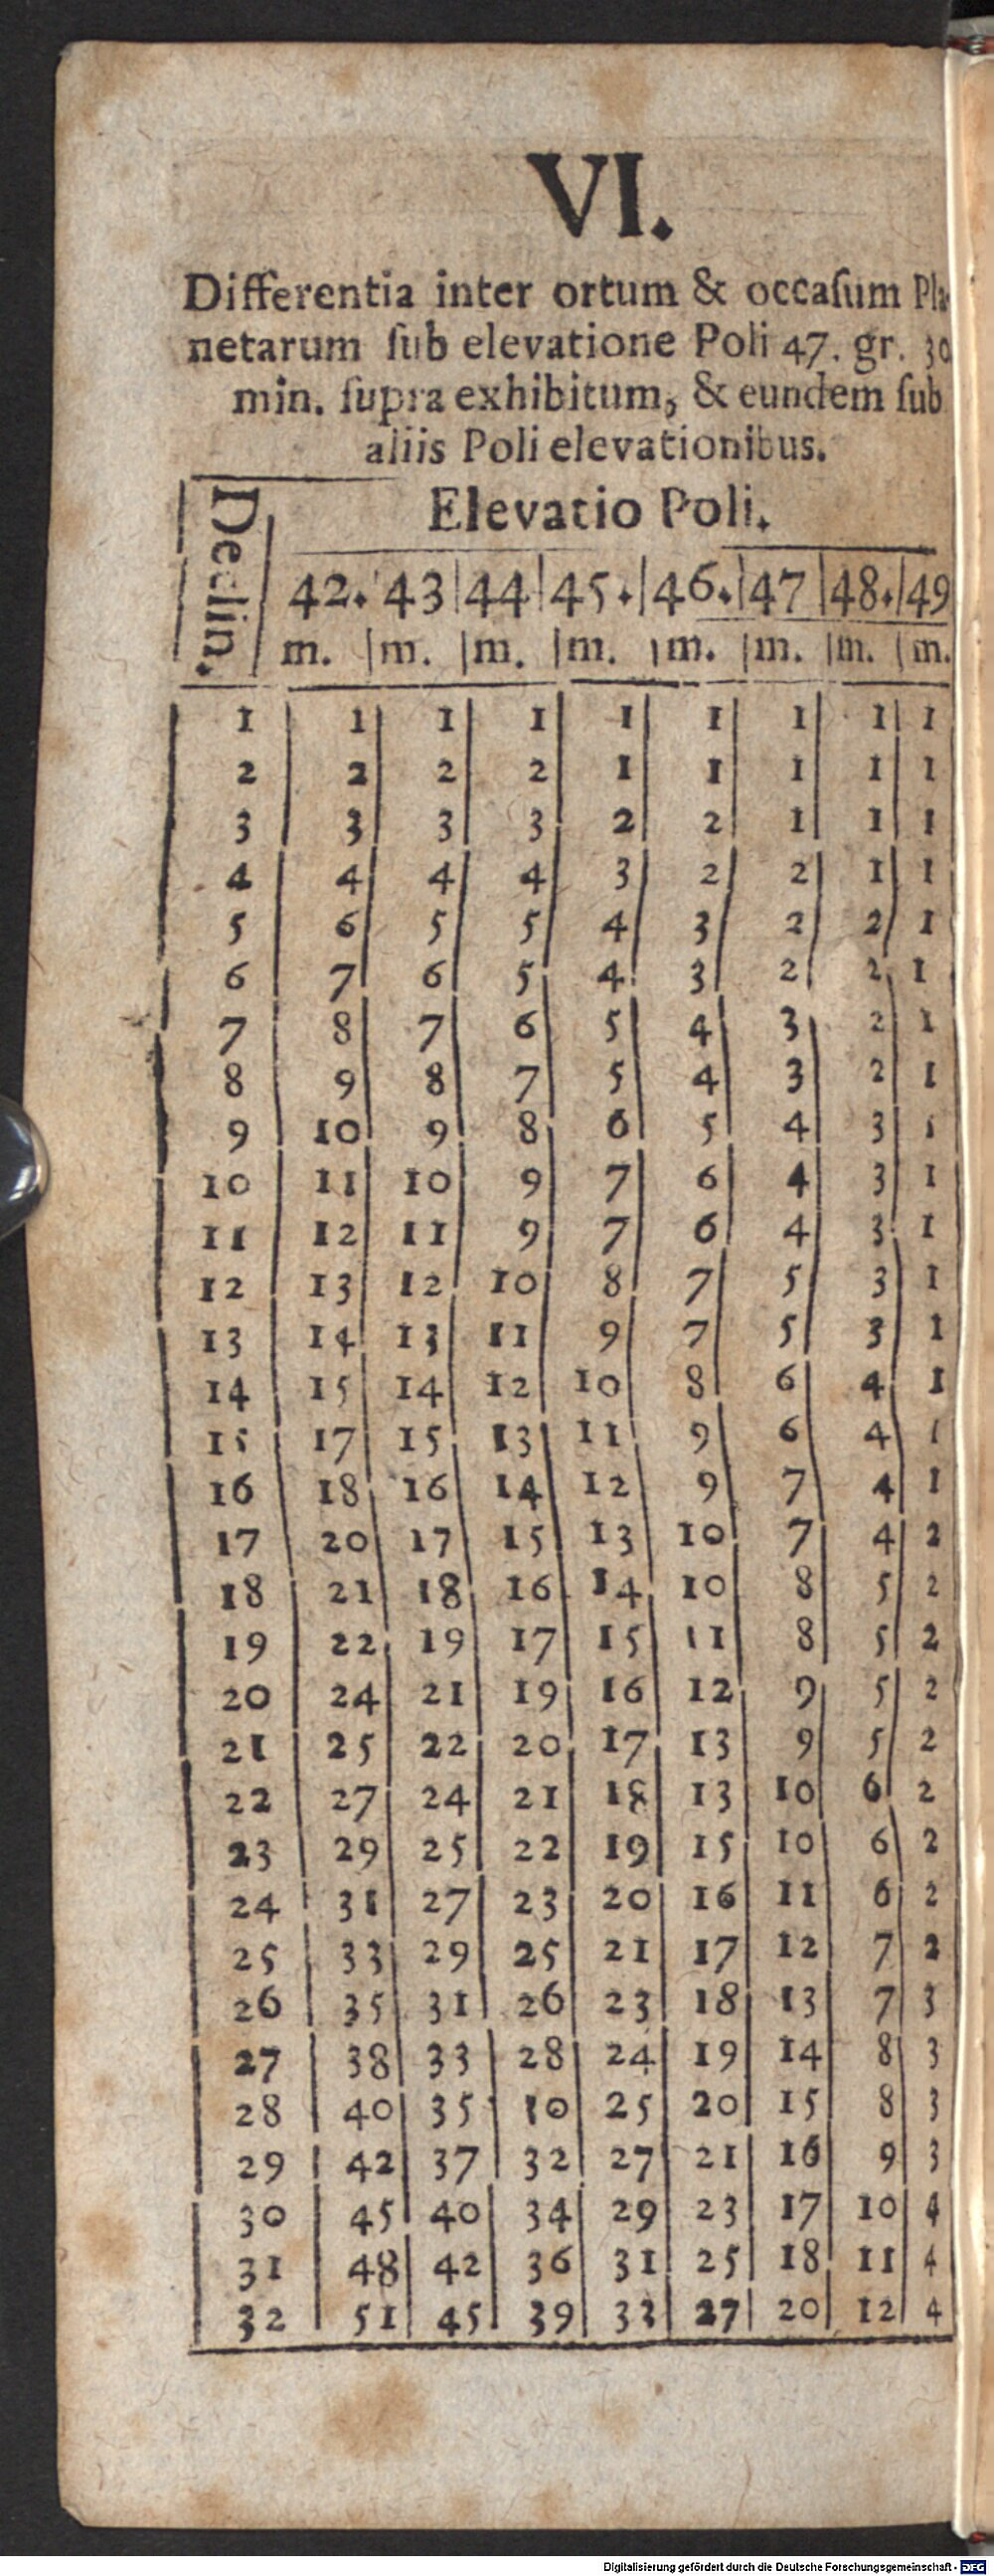 VI.
Differentia inter ortum & occaſum Pla-
netarum ſub elevatione Poli 47. gr. 30
min. ſupra exhibitum, & eundem ſub
aliis Poli elevationibus.
Declin. Elevatio Poli.
42. 43 44 45. 46. 47 48. 49
m. m. m. m. m. m. m. m.
1 1 1 1 1 1 1 1 1
2 2 2 2 1 1 1 1 1
3 3 3 3 2 2 1 1 1
4 4 4 4 3 2 2 1 1
5 6 5 5 4 3 2 2 1
6 7 6 5 4 3 2 2 1
7 8 7 6 5 4 3 2 1
8 9 8 7 5 4 3 2 1
9 10 9 8 6 5 4 3 1
10 11 10 9 7 6 4 3 1
11 12 11 9 7 6 4 3 1
12 13 12 10 8 7 5 3 1
13 14 13 11 9 7 5 3 1
14 15 14 12 10 8 6 4 1
15 17 15 13 11 9 6 4 1
16 18 16 14 12 9 7 4 1
17 20 17 15 13 10 7 4 2
18 21 18 16 14 10 8 5 2
19 22 19 17 15 11 8 5 2
20 24 21 19 16 12 9 5 2
21 25 22 20 17 13 9 5 2
22 27 24 21 18 13 10 6 2
23 29 25 22 19 15 10 6 2
24 31 27 23 20 16 11 6 2
25 33 29 25 21 17 12 7 2
26 35 31 26 23 18 13 7 3
27 38 33 28 24 19 14 8 3
28 40 35 10 25 20 15 8 3
29 42 37 32 27 21 16 9 3
30 45 40 34 29 23 17 10 4
31 48 42 36 31 25 18 11 4
32 51 45 39 33 27 20 12 4
Digitalisierung gefördert durch die Deutsche Forschungsgemeinschaft - DFG